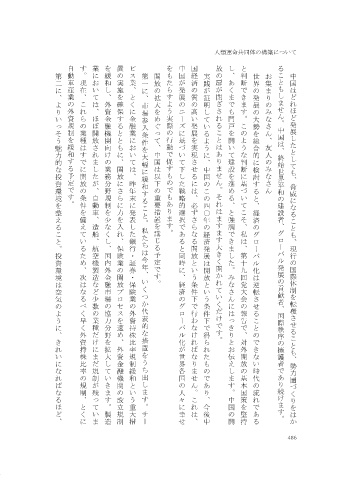 人類運命共同体の構築について
中国はどれほど発展したとしても、脅威になることも、現行の国際体制を転覆させることも、勢力圏づくりをはか
ることもしません。中国は、終始世界平和の建設者、グローバル発展の貢献者、国際秩序の擁護者であり続けます。
お集まりのみなさん、友人のみなさん
世界の発展の大勢を総合的に検討すると、経済のグローバル化は逆転させることのできない時代の流れである
と判断できます。このような判断に基づいてこそ、私は、第十九回党大会の報告で、対外開放の基本国策を堅持
し、あくまでも門戸を開いて建設を進める、と強調できました。みなさんにはっきりとお伝えします。中国の開
放の扉が閉ざされることはありません、それはますます大きく開かれていくだけです。
実践が証明しているように、中国のこの四〇年の経済発展は開放という条件下で得られたものであり、今後中
国経済の質の高い発展を実現させるには、必ずさらなる開放という条件下で行わなければなりません。これは、
中国が発展のニーズに基づいて下した戦略的選択であると同時に、経済のグローバル化が世界各国の人々に幸せ
をもたらすよう実際の行動で促すものでもあります。
開放の拡大をめぐって、中国は以下の重要措置を講じる予定です。
第一に、市場参入条件を大幅に緩和すること。私たちは今年、いくつか代表的な措置をうち出します。サー
ビス業、とくに金融業においては、昨年末に発表した銀行・証券・保険業の外資持株比率規制緩和という重大措
置の実施を確保するとともに、開放にさらに力を入れ、保険業の開放プロセスを速め、外資金融機関の設立規制
を緩和し、外資金融機関向けの業務分野規制を少なくし、国内外金融市場の協力分野を拡大していきます。製造
業においては、ほぼ開放されましたが、自動車、造船、航空機製造など少数の業種だけにまだ規制が残っていま
す。現在、これらの業種はすでに開放の条件を備えているため、次はなるべく早く外資持株比率の規制、とくに
自動車産業の外資規制を緩和する予定です。
第二に、よりいっそう魅力的な投資環境を整えること。投資環境は空気のように、きれいになればなるほど、
486